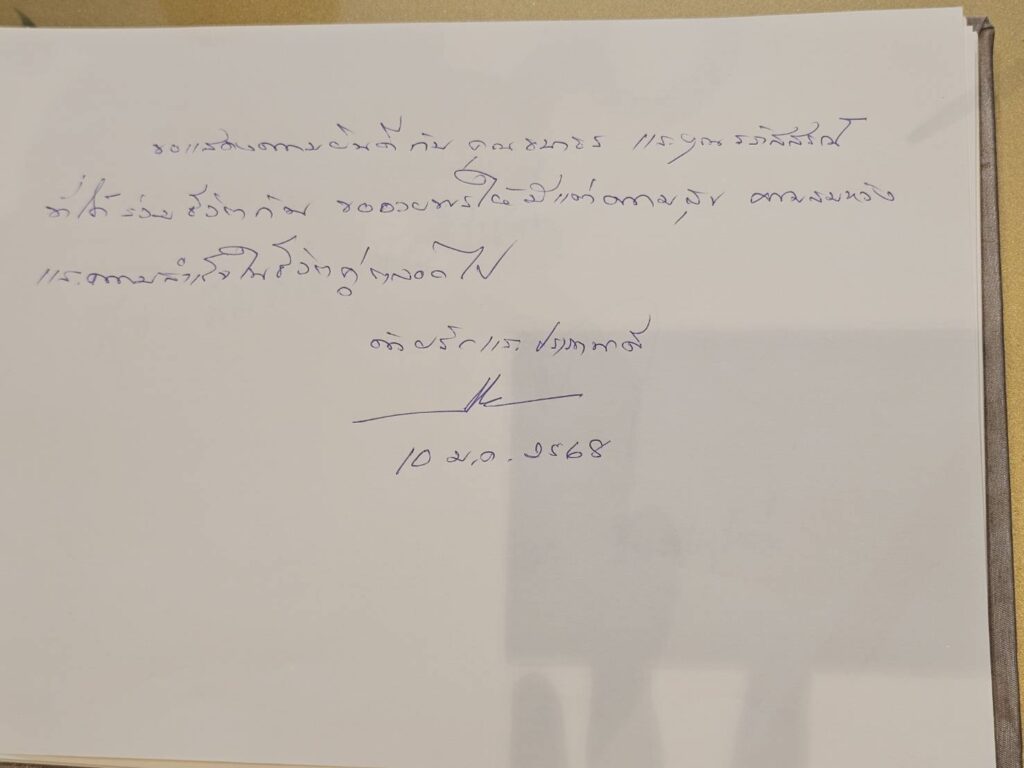 ขอแสดงความยินดี กับ คุณ ธนาธร และคุณ
ที่ได้ ร่วม ชีวิต กัน ขออวยพรให้มีแต่ความสุข ความสมหวัง
และความสำเร็จในชีวิตคู่ตลอดไป
ด้วยรัก และ ปรารถนาดี
10 ม.ค. 2568